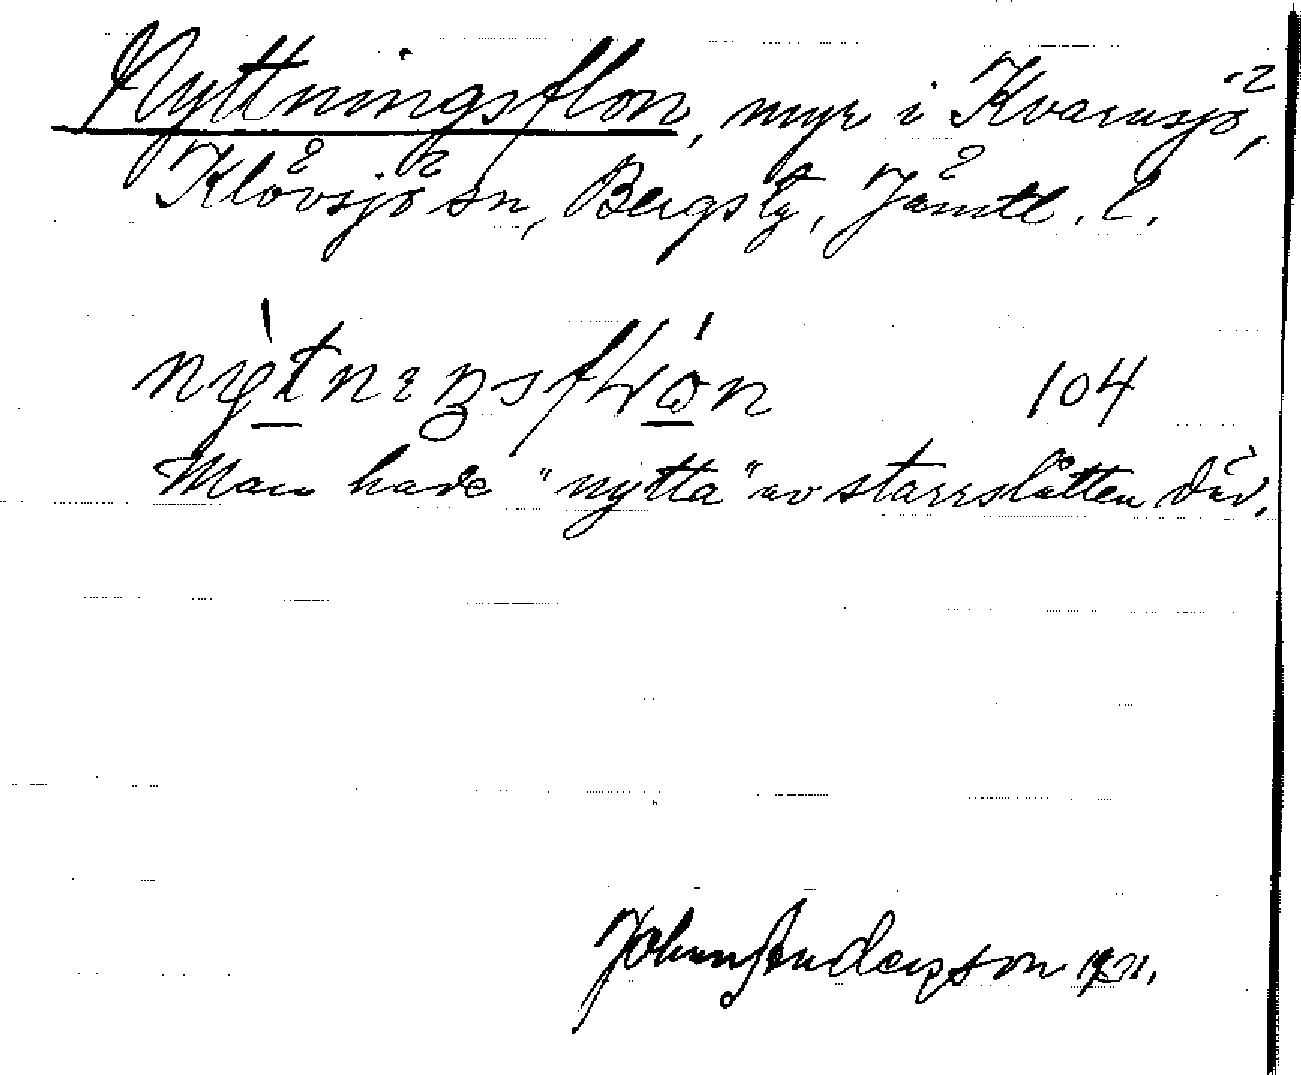 Nyttningsflon, myr i Kvarnsjö,
Klövsjö sn, Bergs tg, Jämtl. l.
104
Man hade "nytta" av starrslåtten där.
John Anderson